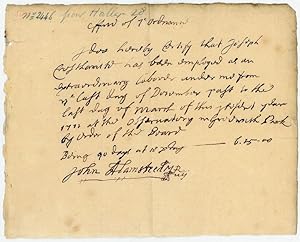 Office of ye Ordnance
I doe hereby Certify that Joseph
has been employed as an
extraordinary laborer under me from
ye last day of December past to the
last day of March of this present year
at the Observatory in Greenwich Park
by Order of the Board
Being 90 days at 18 p day — 6.15.00
John Flamsteed